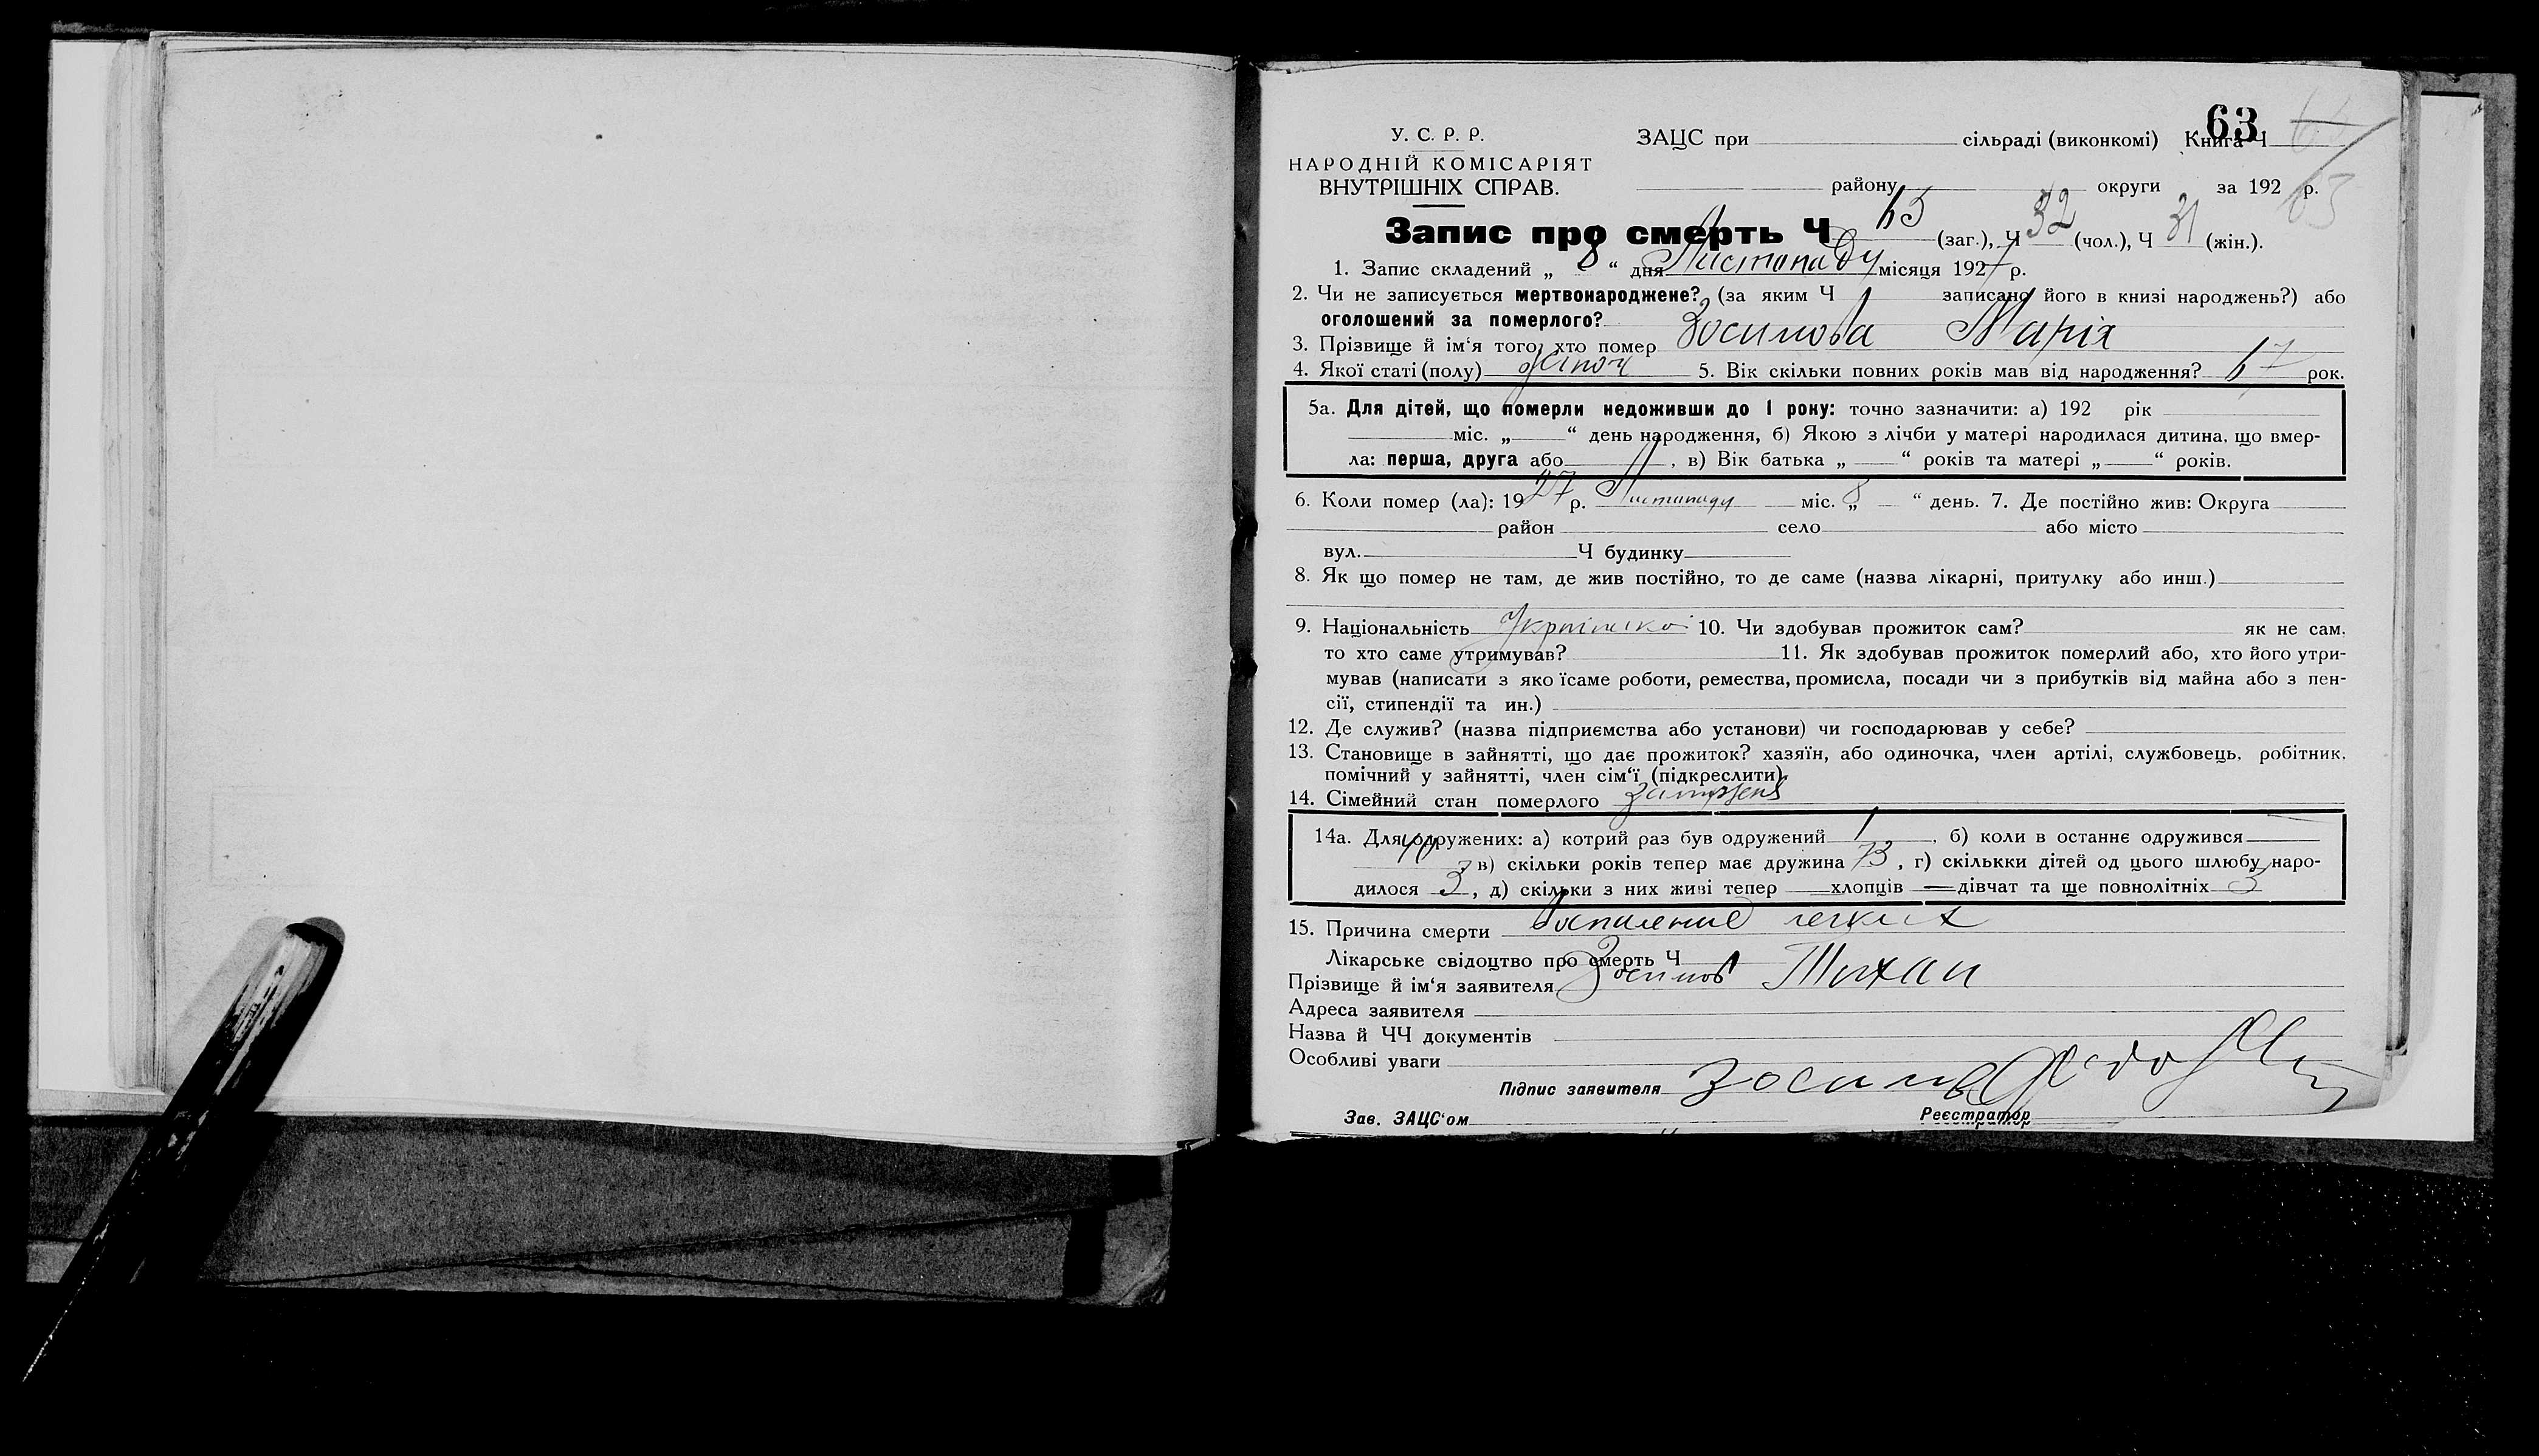 63
У. С. Р. Р. ЗАЦС при сільраді (виконкомі) Книга Ч
НАРОДНІЙ КОМІСАРІЯТ
ВНУТРІШНІХ СПРАВ. району округи за 192 р. 63
Запис про смерть Ч 63 (заг.), Ч 32 (чол.), Ч 31 (жін.).
1. Запис складений „ 8 “ дня Листопаду місяця 1927 р.
2. Чи не записується мертвонароджене? (за яким Ч записано його в книзі народжень?) або
оголошений за померлого?
3. Прізвище й ім‘я того, хто помер Зосимова Марія
4. Якої статі (полу) жіноч 5. Вік скільки повних років мав від народження? 67 рок.
5а. Для дітей, що померли недоживши до 1 року: точно зазначити: а) 192 рік
міс. „ “ день народження, б) Якою з лічби у матері народилася дитина, що вмер-
ла: перша, друга або , в) Вік батька „ “ років та матері „ “ років.
6. Коли помер (ла): 1927 р. Листопаду міс. „ 8 “ день. 7. Де постійно жив: Округа
район село або місто
вул. Ч будинку
8. Як що помер не там, де жив постійно, то де саме (назва лікарні, притулку або инш.)
9. Національність 10. Чи здобував прожиток сам? як не сам,
то хто саме утримував? 11. Як здобував прожиток померлий або, хто його утри-
мував (написати з яко їсаме роботи, ремества, промисла, посади чи з прибутків від майна або з пен-
сії, стипендії та ин.)
12. Де служив? (назва підприємства або установи) чи господарював у себе?
13. Становище в зайнятті, що дає прожиток? хазяїн, або одиночка, член артілі, службовець, робітник,
помічний у зайнятті, член сім‘ї (підкреслити).
14. Сімейний стан померлого
14а. Для одружених: а) котрий раз був одружений 1 , б) коли в останнє одружився
в) скільки років тепер має дружина 73 , г) скількки дітей од цього шлюбу наро-
дилося 3 , д) скільки з них живі тепер — хлопців — дівчат та ще повнолітніх 3
15. Причина смерти Воспаление легких
Лікарське свідоцтво про смерть Ч
Прізвище й ім‘я заявителя Зосимов
Адреса заявителя
Назва й ЧЧ документів
Особливі уваги
Підпис заявителя
Зав. ЗАЦС‘ом Реєстратор